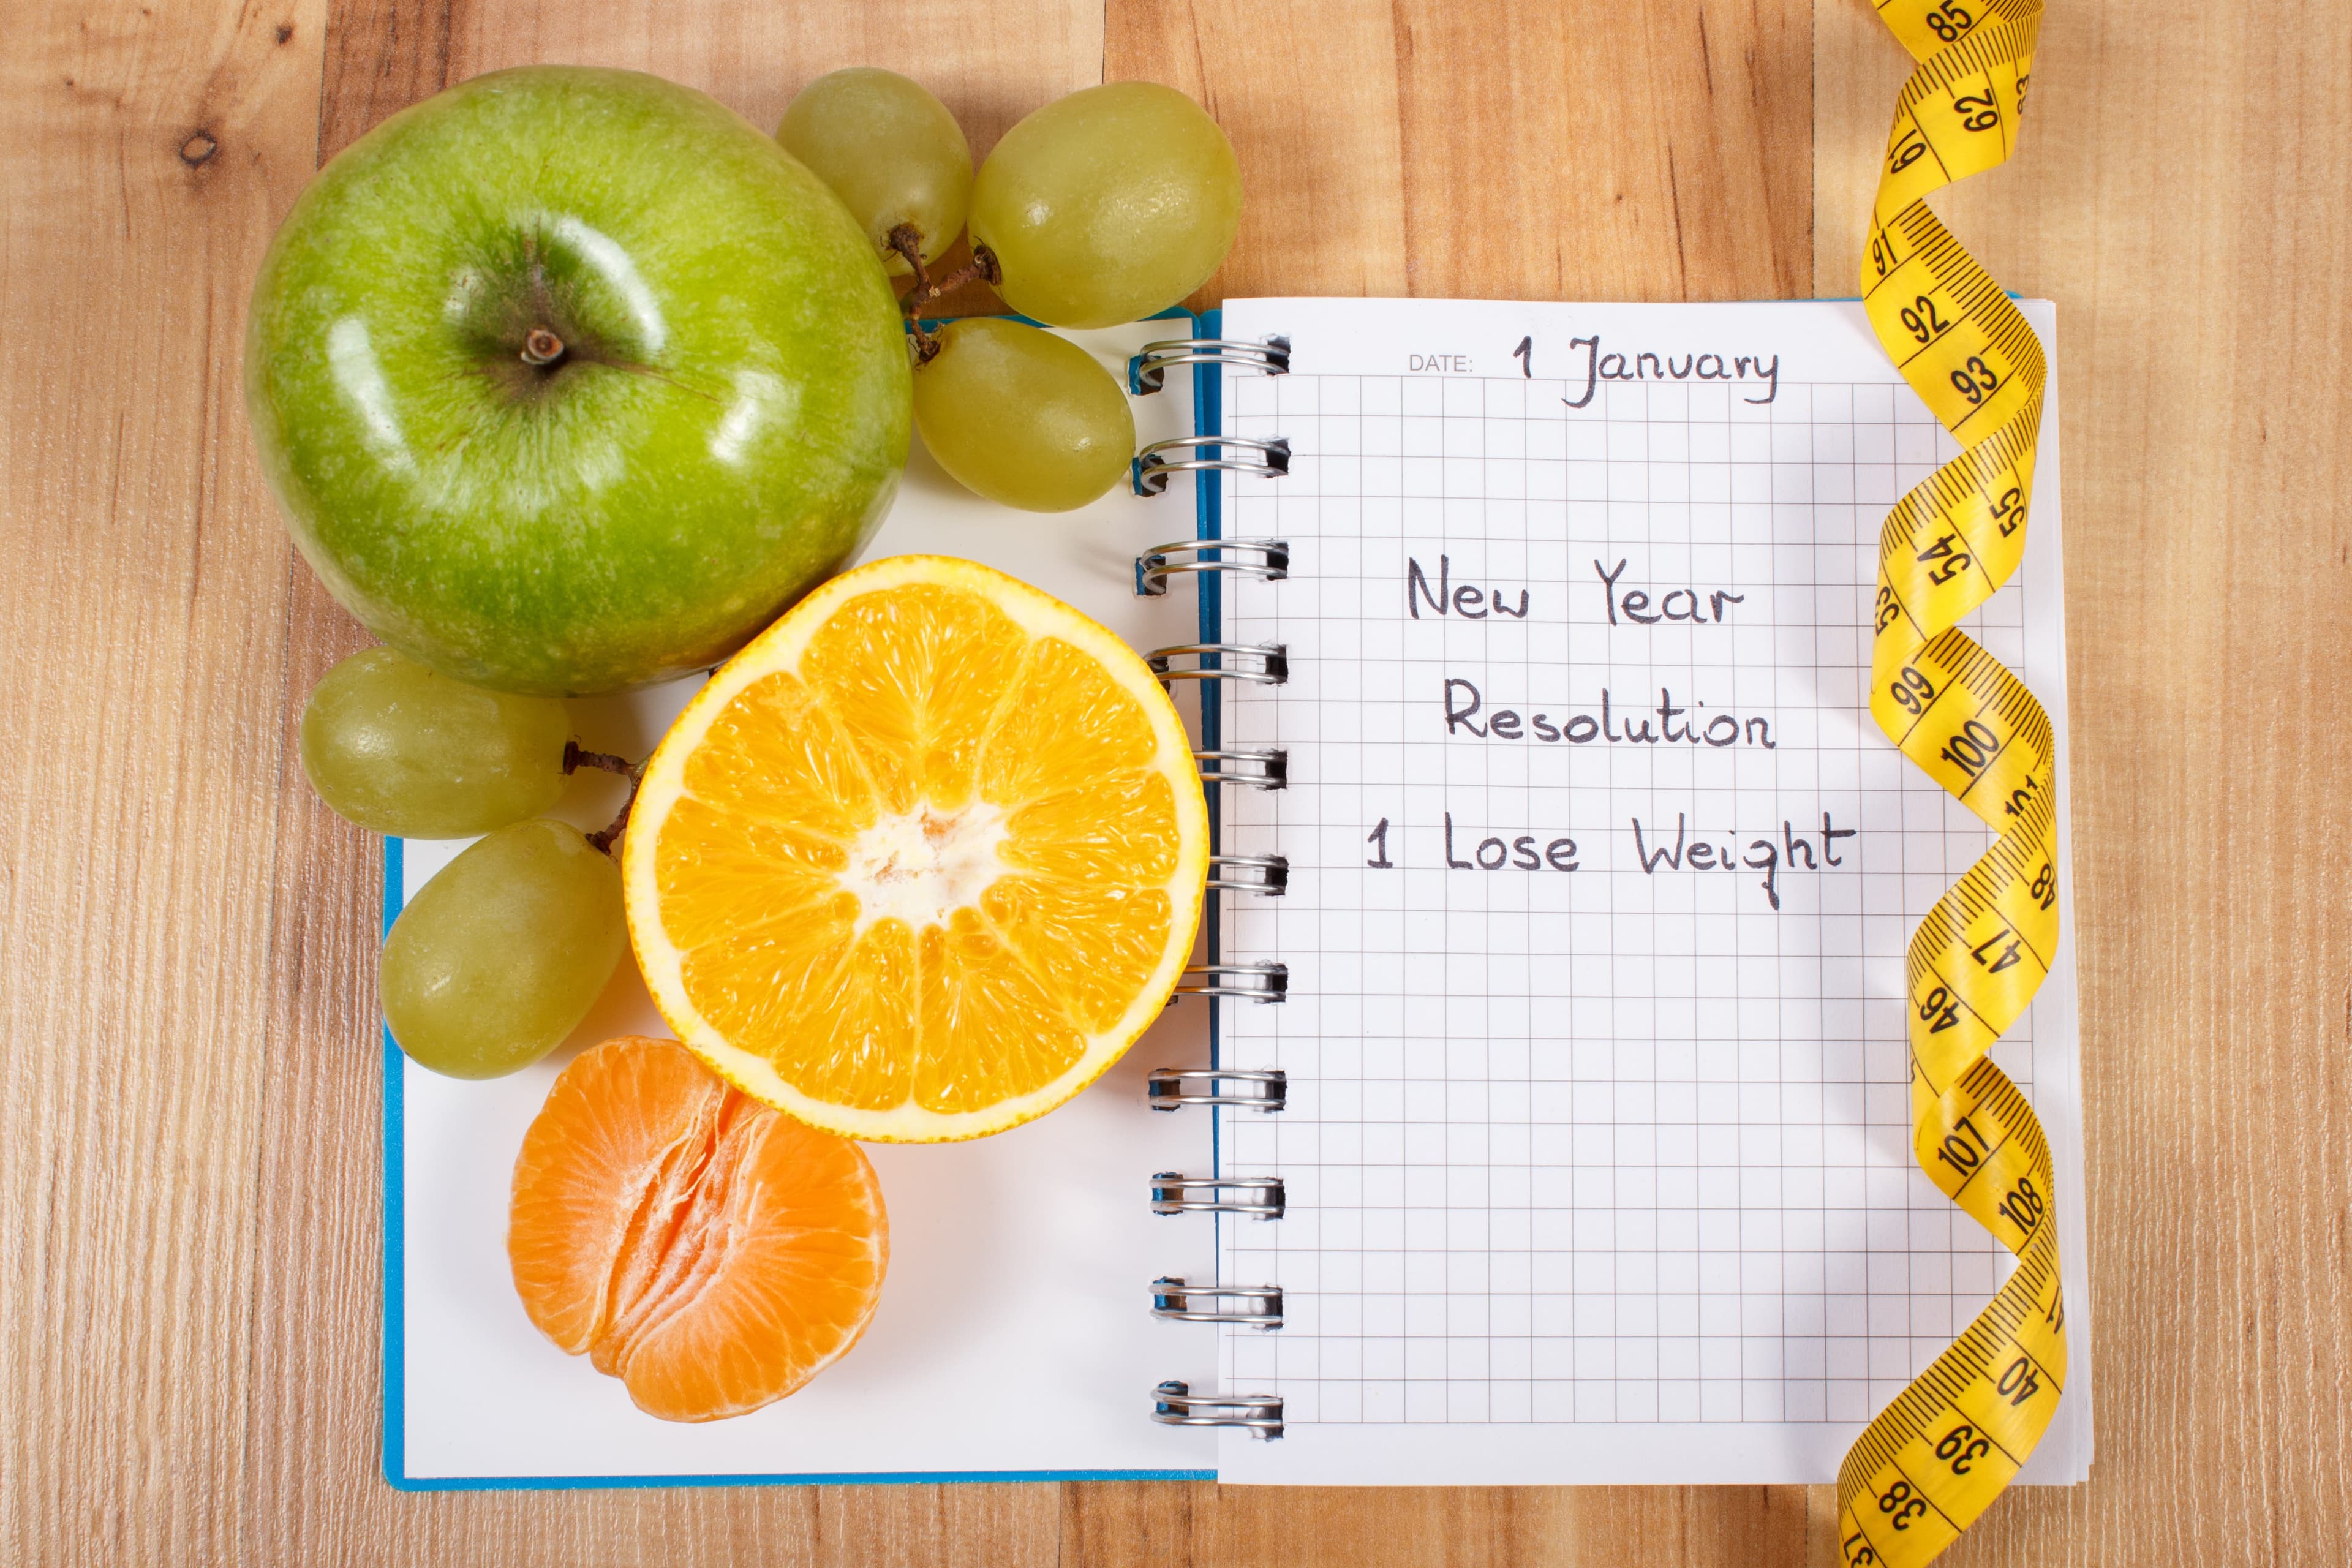 DATE: 1 January
New Year
Resolution
1 Lose Weight
85
62
61
91
92
93
55
54
53
99
100
101
48
47
46
107
108
41
40
39
38
37